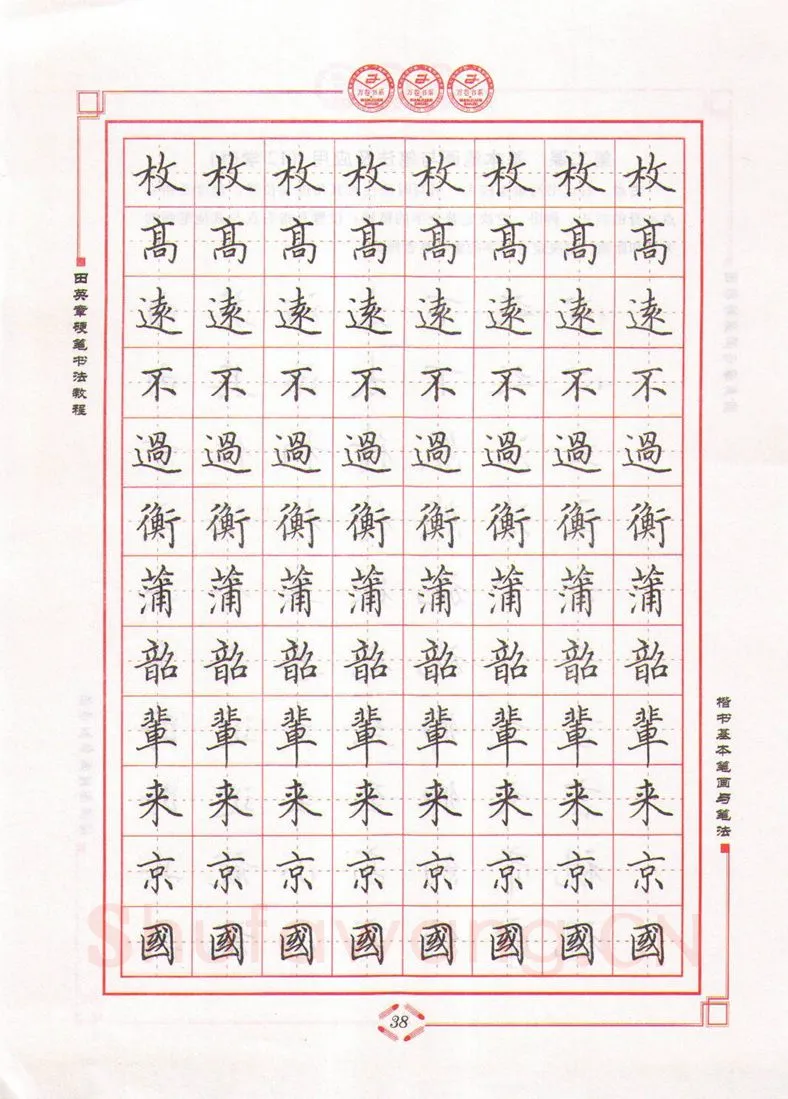 万卷书系 万卷书系 万卷书系
田英章硬笔书法教程
枚 枚 枚 枚 枚 枚 枚 枚
高 高 高 高 高 高 高 高
遠 遠 遠 遠 遠 遠 遠 遠
不 不 不 不 不 不 不 不
過 過 過 過 過 過 過 過
衡 衡 衡 衡 衡 衡 衡 衡
蒲 蒲 蒲 蒲 蒲 蒲 蒲 蒲
韶 韶 韶 韶 韶 韶 韶 韶
輩 輩 輩 輩 輩 輩 輩 輩
来 来 来 来 来 来 来 来
京 京 京 京 京 京 京 京
國 國 國 國 國 國 國 國
楷书基本笔画与笔法
Shufawang.CN
38